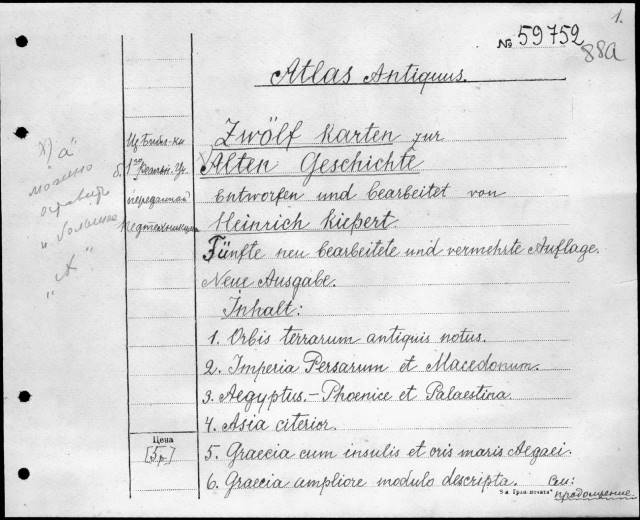 1.
№ 59752
88a
Atlas Antiquus.
Zwölf Karten zur
Alten Geschichte
entworfen und bearbeitet von
Heinrich Kiepert.
Fünfte neu bearbeitete und vermehrte Auflage.
Neue Ausgabe.
Inhalt:
1. Orbis terrarum antiquis notus.
2. Imperia Persarum et Macedonum.
3. Aegyptus. – Phoenice et Palaestina.
4. Asia citerior.
5. Graecia cum insulis et oris maris Aegaei.
6. Graecia ampliore modulo descripta. См:
продолжение.
Из Библ-ки
б. 1ой
переданной
Педтехникуму
"а"
можно
оставить
и большое
"А"
Цена
[5 р.]